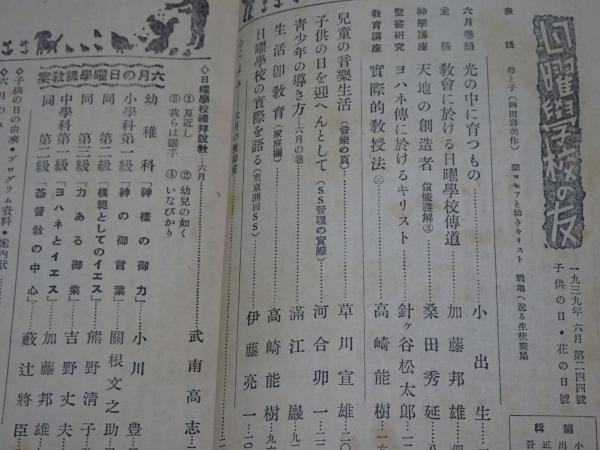 日曜學校の友
一九三九年 六月 第二四四號
子供の日・花の日號
表紙 母と子(岡田壽美作)
聖ヨセフと幼きキリスト 戰地へ送る生徒蒐集
六月卷頭 光の中に育つもの 小出生
主張 教會に於ける日曜學校傳道 加藤邦雄
神學講座 天地の創造者 信條講解③ 桑田秀延
聖書研究 ヨハネ傳に於けるキリスト 針ヶ谷松太郎
教育講座 實際的教授法㊂ 高崎能樹
兒童の音樂生活(音樂の頁) 草川宣雄 二〇
子供の日を迎へんとして(SS管理の實際) 河合卯一
青少年の導き方 六月の卷 滿江巖 九二
生活卽教育(家庭欄) 高崎能樹 九六
日曜學校の實際を語る(東京蒲田SS) 伊藤亮一
◇日曜學校禮拜說教…六月 武南高志
①夏近し ②幼兒の如く
③我らは選手 ④いなびかり
六月の日曜學課教案
幼稚科 「神樣の御力」 小川豊
小學科第一級 「神の御言葉」 關根文之助
同 第二級 「模範としてのイエス」 熊野清子
同 第三級 「力ある御業」 吉野丈夫
中學科第一級 「ヨハネとイエス」 加藤邦雄
同 第二級 「基督教の中心」 藪辻將臣
◇子供の日の由來・プログラム資料・案內狀